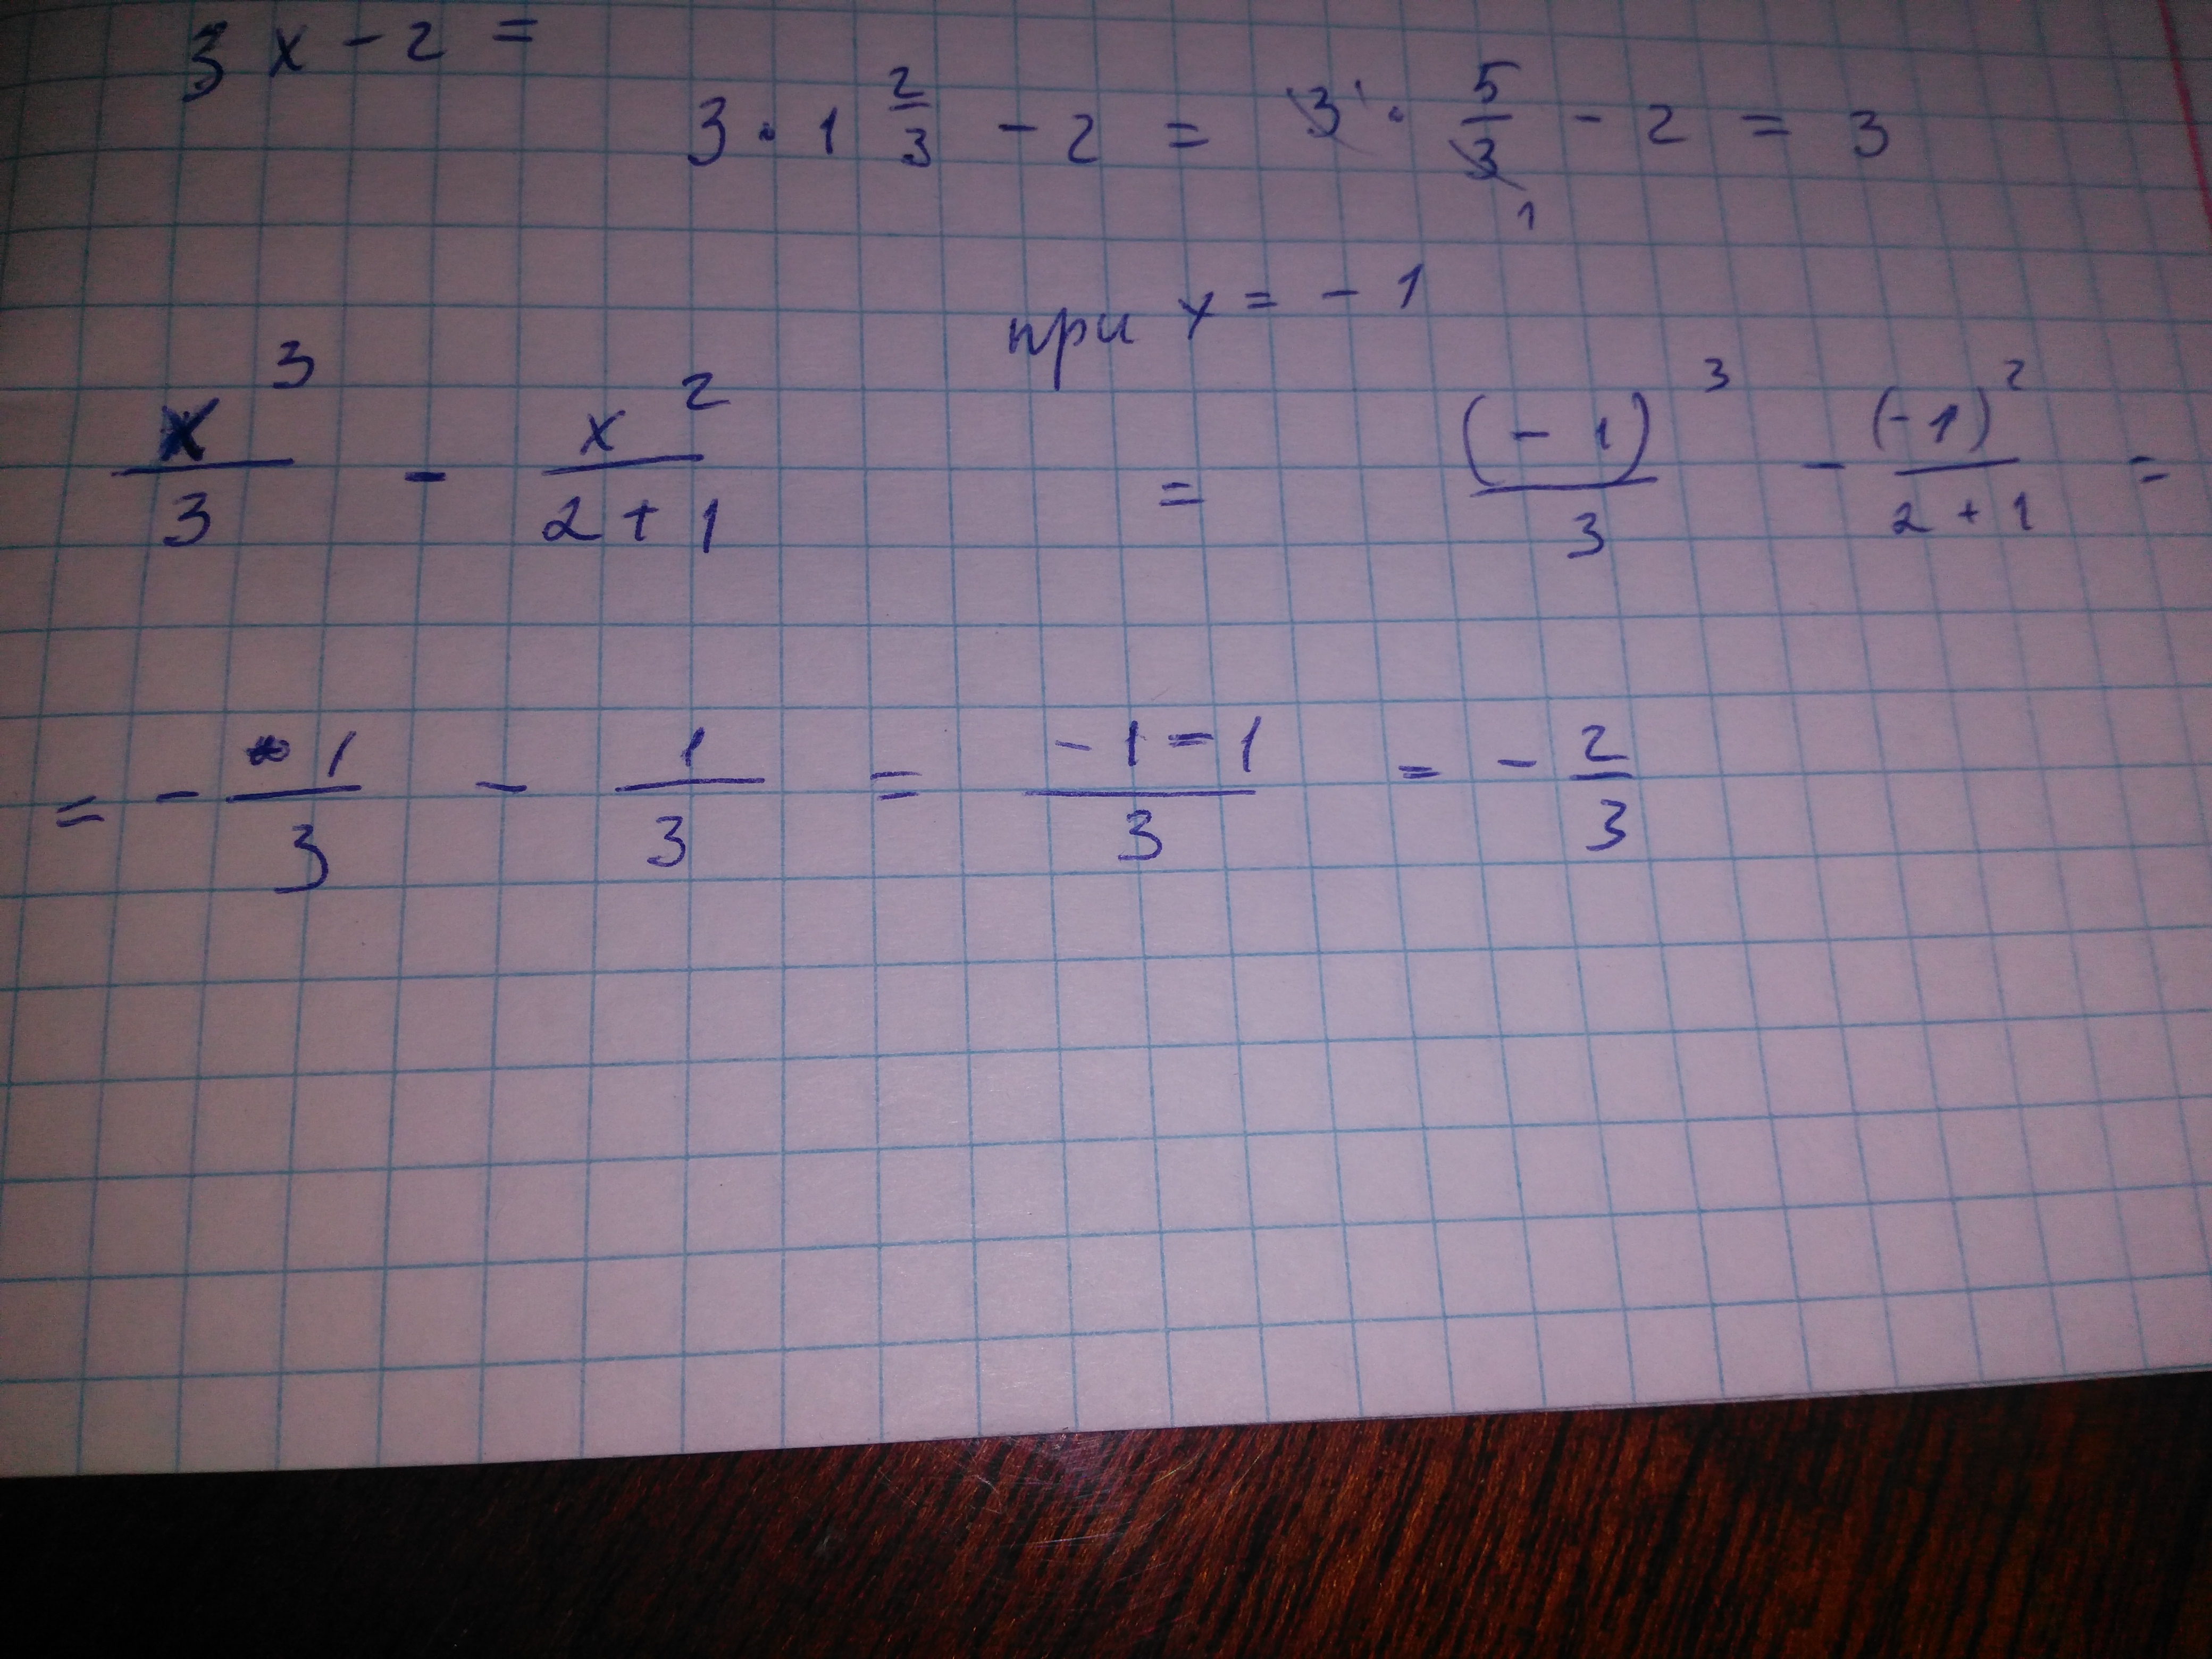 3 x - 2 =
3 · 1 2/3 - 2 = 3¹ · 5/3 1 - 2 = 3
при x = - 1
x³/3 - x²/2 + 1 = (- 1)³/3 - (- 1)²/2 + 1 =
= - 1/3 - 1/3 = - 1 - 1/3 = - 2/3